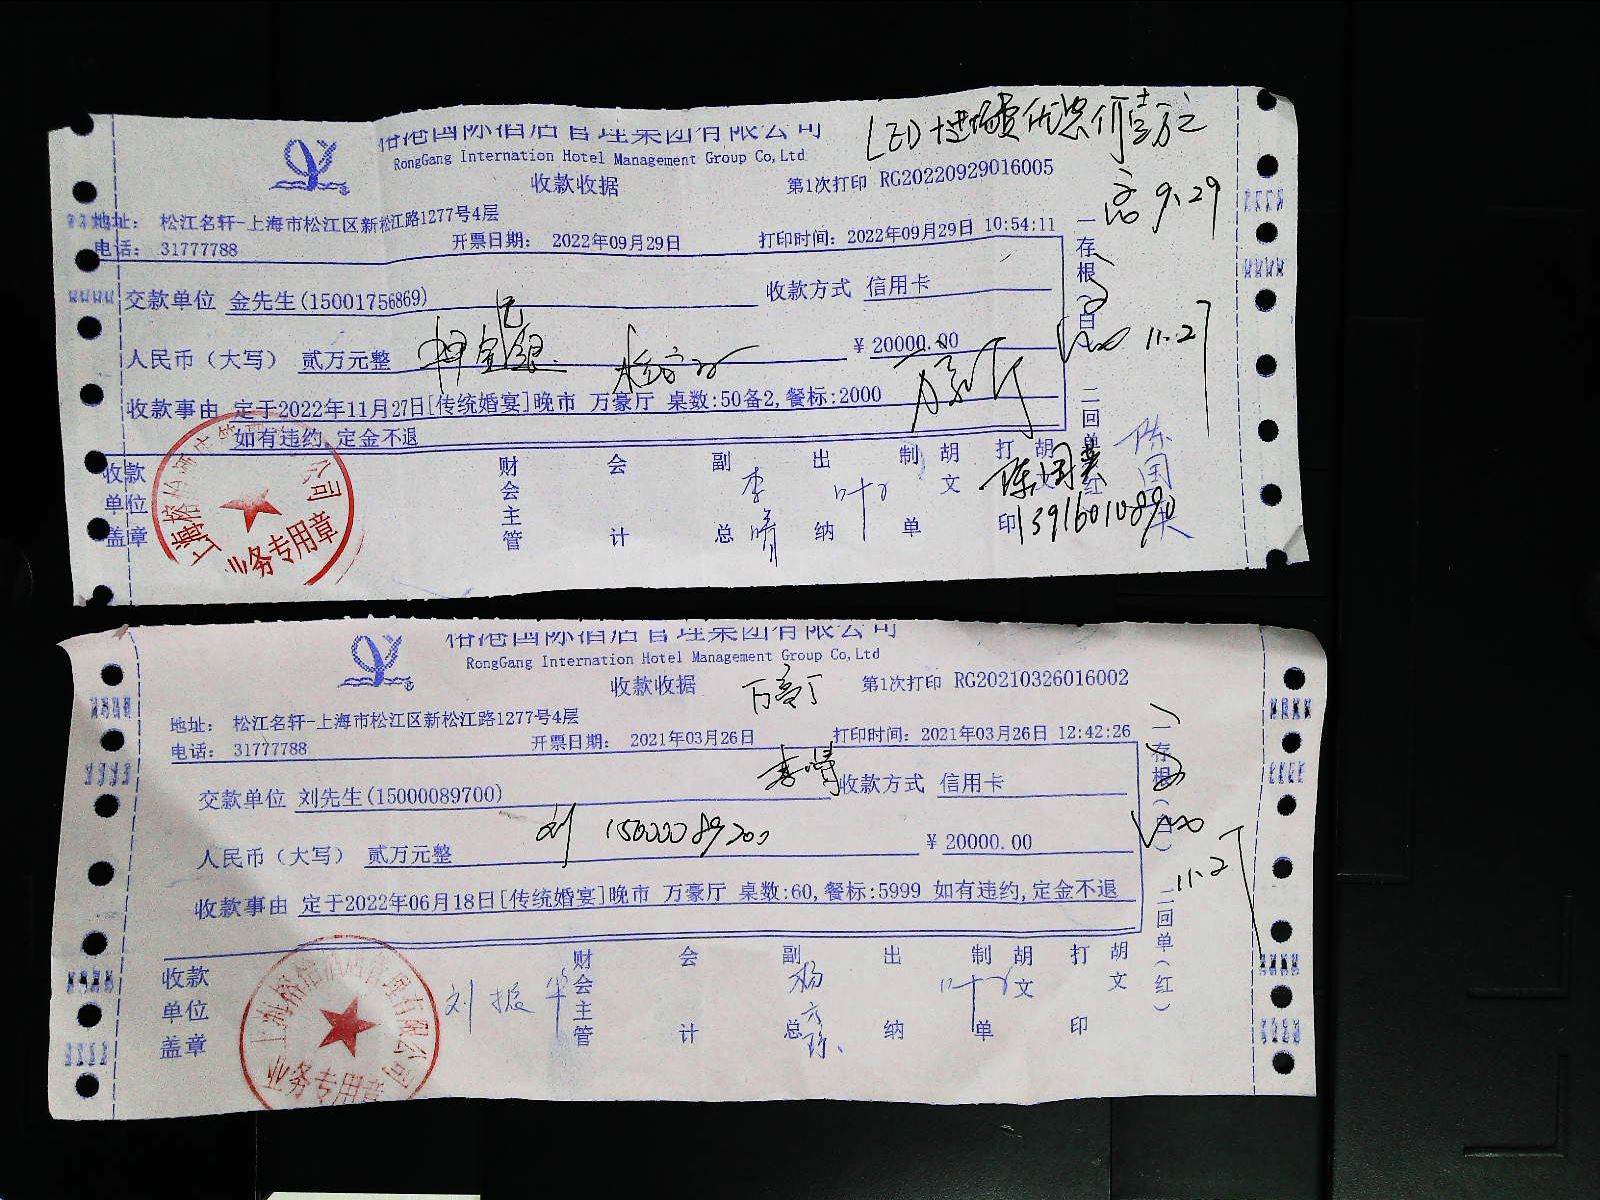 裕港国际酒店管理集团有限公司
RongGang Internation Hotel Management Group Co,Ltd
收款收据
第1次打印 RG20220929016005
9.29
地址: 松江名轩-上海市松江区新松江路1277号4层
电话: 31777788
开票日期: 2022年09月29日
打印时间: 2022年09月29日 10:54:11
交款单位 金先生(15001756869)
收款方式 信用卡
人民币(大写) 贰万元整
¥20000.00
11.27
收款事由 定于2022年11月27日[传统婚宴]晚市 万豪厅 桌数:50备2,餐标:2000
万豪厅
如有违约,定金不退
一存根(白) 二回单(红)
收款单位盖章
财会主管 会计 副总 李晴 出纳 叶 制单 胡文 打印 胡
陈国美
13916010890
陈国美
业务专用章
裕港国际酒店管理集团有限公司
RongGang Internation Hotel Management Group Co,Ltd
收款收据
万豪厅
第1次打印 RG20210326016002
地址: 松江名轩-上海市松江区新松江路1277号4层
电话: 31777788
开票日期: 2021年03月26日
打印时间: 2021年03月26日 12:42:26
交款单位 刘先生(15000089700)
李晴
收款方式 信用卡
刘 15000089700
人民币(大写) 贰万元整
¥20000.00
11.27
收款事由 定于2022年06月18日[传统婚宴]晚市 万豪厅 桌数:60,餐标:5999 如有违约,定金不退
一存根(白) 二回单(红)
收款单位盖章
刘振华
财会主管 会计 副总 出纳 叶 制单 胡文 打印 胡文
上海裕港酒店管理有限公司
业务专用章